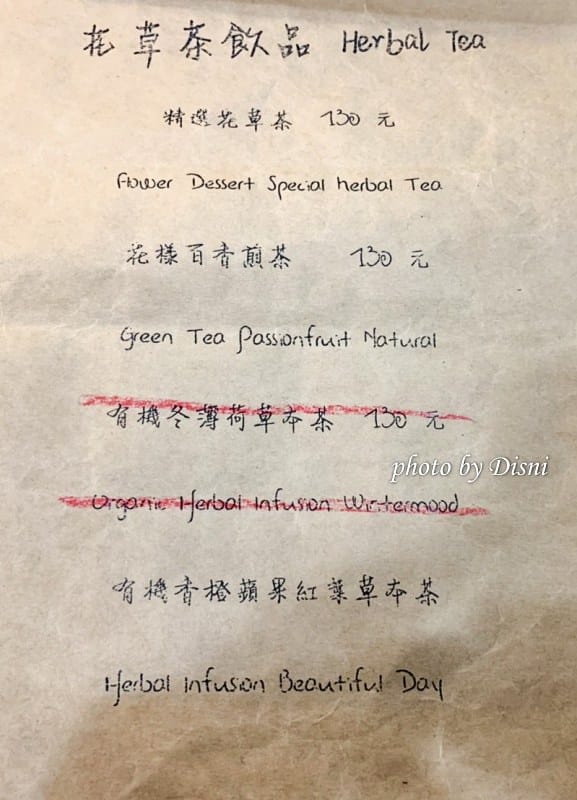 花草茶飲品 Herbal Tea
精選花草茶 130 元
Flower Dessert Special herbal Tea
花樣百香煎茶 130 元
Green Tea Passionfruit Natural
有機冬薄荷草本茶 130 元
photo by Disni
Organic Herbal Infusion Wintermood
有機香橙蘋果紅葉草本茶
Herbal Infusion Beautiful Day